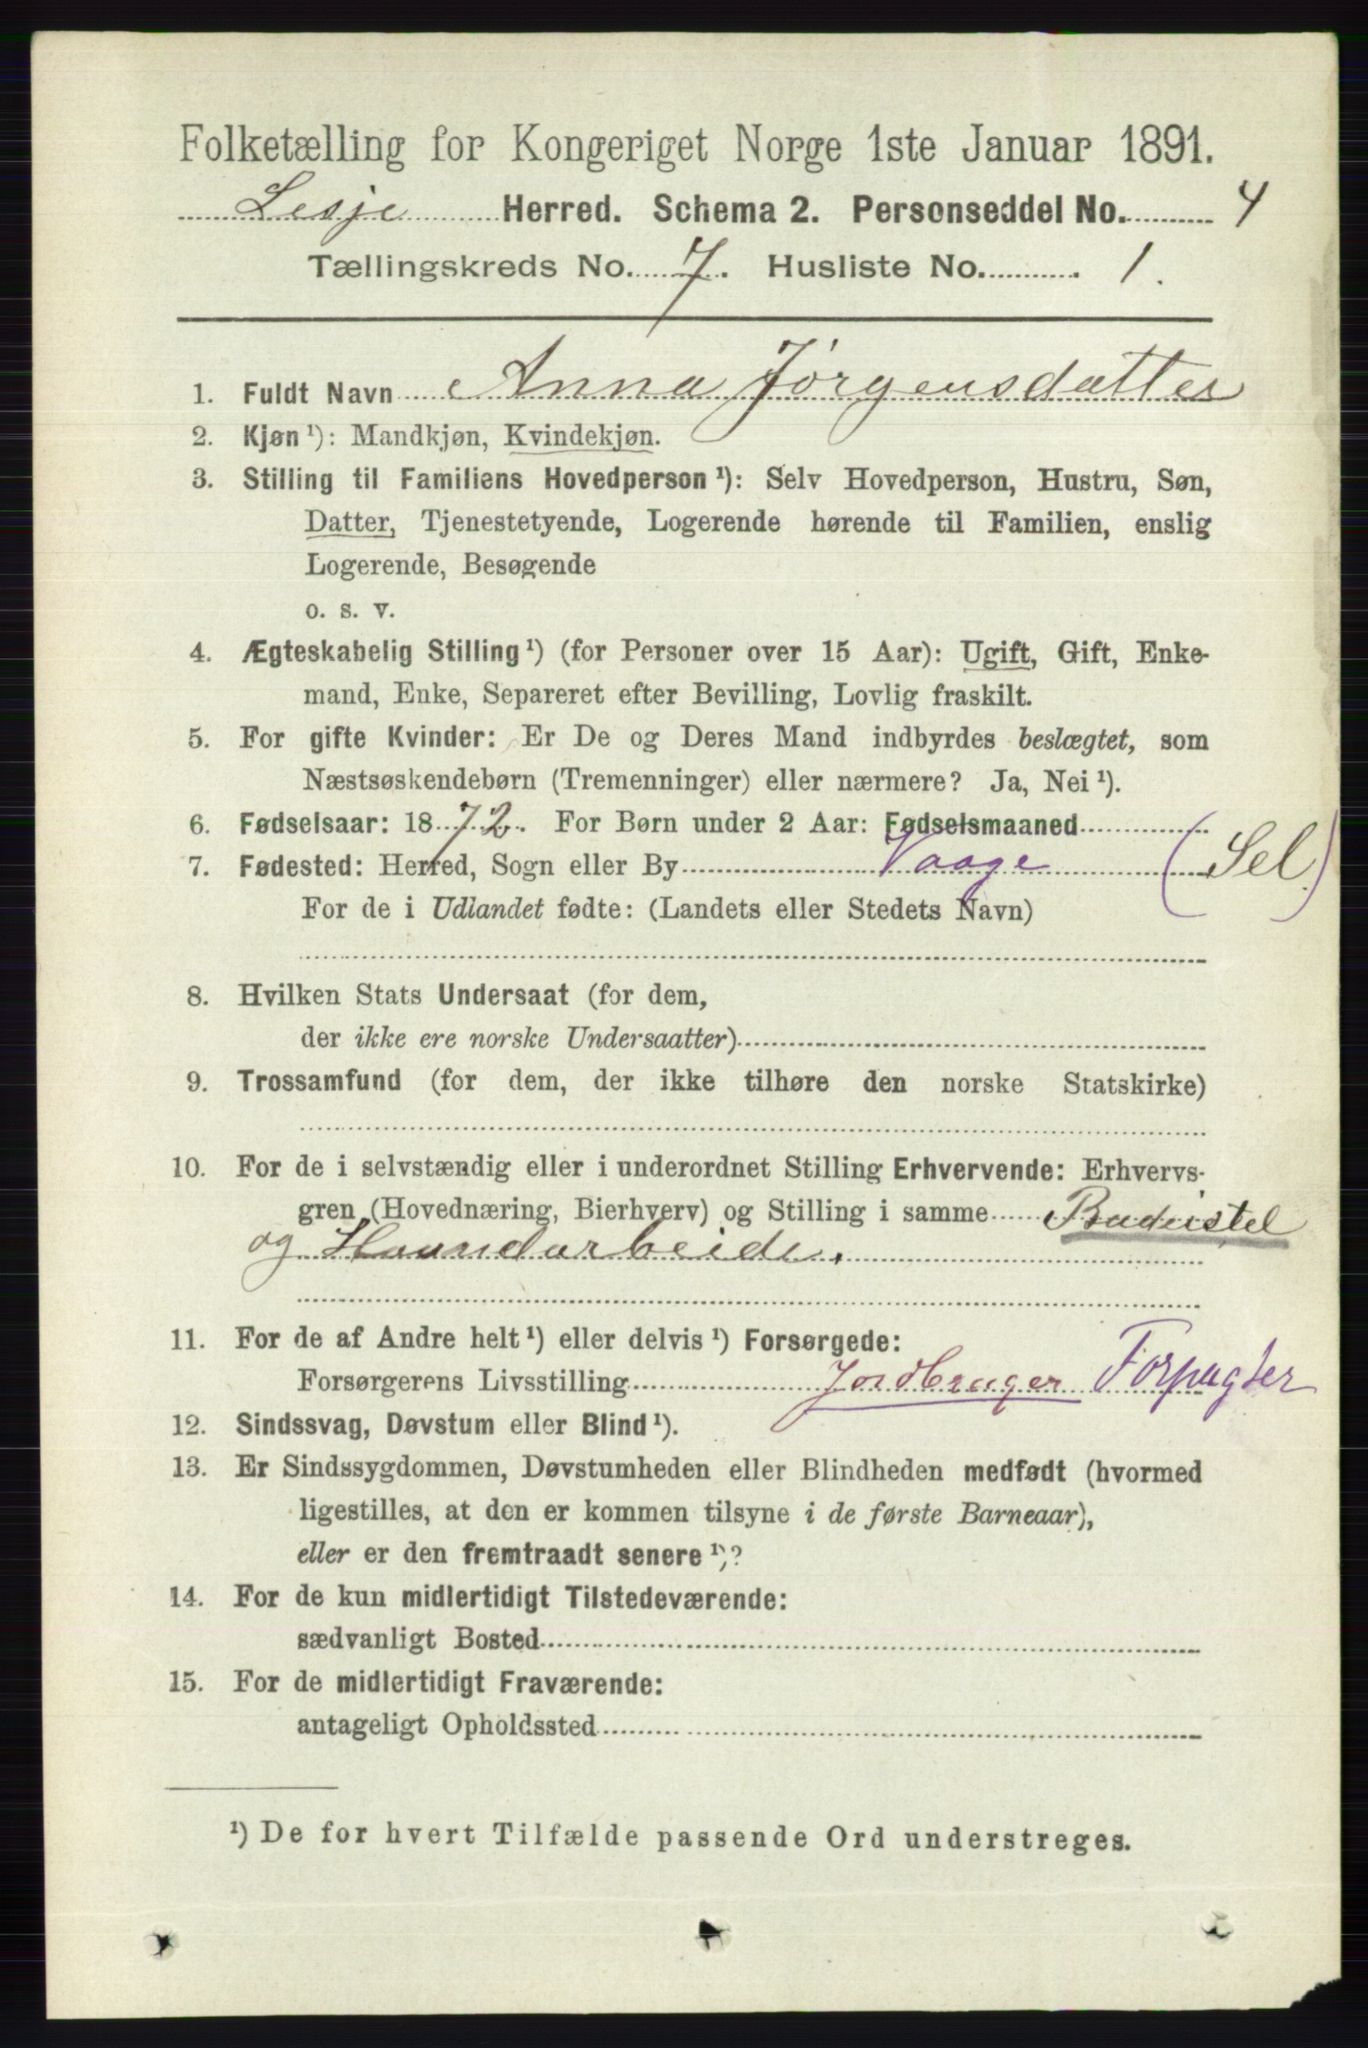 Folketælling for Kongeriget Norge 1ste Januar 1891.
Lesje Herred. Schema 2. Personseddel No. 4
Tællingskreds No. 7. Husliste No. 1.
1. Fuldt Navn Anna Jörgensdatter
2. Kjøn ¹): Mandkjøn, Kvindekjøn.
3. Stilling til Familiens Hovedperson ¹): Selv Hovedperson, Hustru, Søn,
Datter, Tjenestetyende, Logerende hørende til Familien, enslig
Logerende, Besøgende
o. s. v.
4. Ægteskabelig Stilling ¹) (for Personer over 15 Aar): Ugift, Gift, Enke-
mand, Enke, Separeret efter Bevilling, Lovlig fraskilt.
5. For gifte Kvinder: Er De og Deres Mand indbyrdes beslægtet, som
Næstsøskendebørn (Tremenninger) eller nærmere? Ja, Nei ¹).
6. Fødselsaar: 1872. For Børn under 2 Aar: Fødselsmaaned
7. Fødested: Herred, Sogn eller By Vaage (Sel)
For de i Udlandet fødte: (Landets eller Stedets Navn)
8. Hvilken Stats Undersaat (for dem,
der ikke ere norske Undersaatter)
9. Trossamfund (for dem, der ikke tilhøre den norske Statskirke)
10. For de i selvstændig eller i underordnet Stilling Erhvervende: Erhvervs-
gren (Hovednæring, Bierhverv) og Stilling i samme Budeistel
og Haandarbeide.
11. For de af Andre helt ¹) eller delvis ¹) Forsørgede:
Forsørgerens Livsstilling Jordbruger Forpagter
12. Sindssvag, Døvstum eller Blind ¹).
13. Er Sindssygdommen, Døvstumheden eller Blindheden medfødt (hvormed
ligestilles, at den er kommen tilsyne i de første Barneaar),
eller er den fremtraadt senere ¹)?
14. For de kun midlertidigt Tilstedeværende:
sædvanligt Bosted
15. For de midlertidigt Fraværende:
antageligt Opholdssted
¹) De for hvert Tilfælde passende Ord understreges.